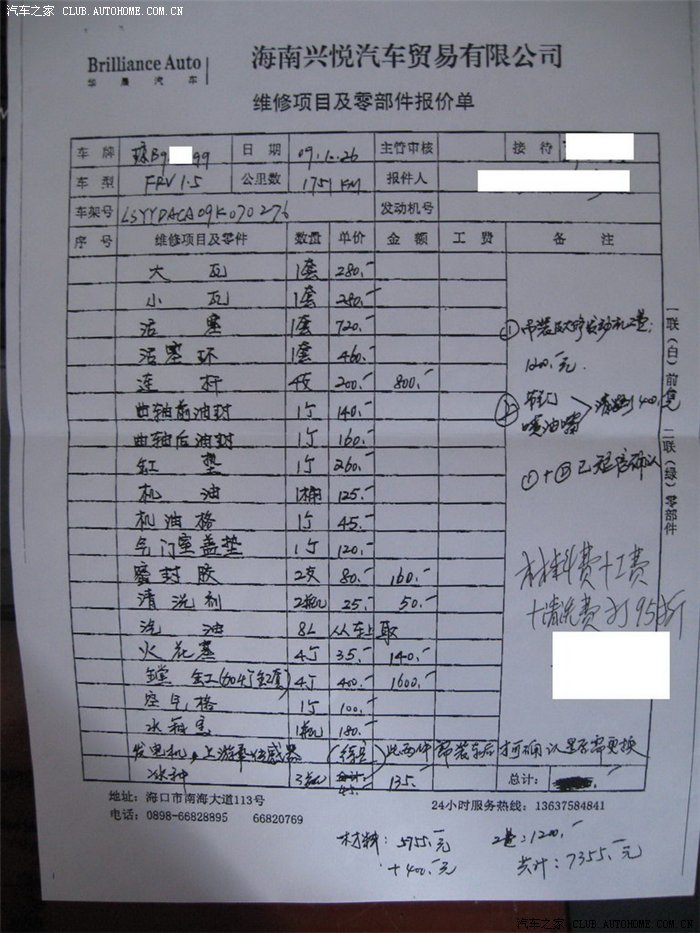 汽车之家 CLUB.AUTOHOME.COM.CN
Brilliance Auto
华晨汽车
海南兴悦汽车贸易有限公司
维修项目及零部件报价单
车牌 琼B9 99 日期 09.1.26 主管审核 接待
车型 FRV 1.5 公里数 1751 KM 报件人
车架号 LSYYDACA09K070276 发动机号
序号 维修项目及零件 数量 单价 金额 工费 备注
大瓦 1套 280.-
小瓦 1套 280.-
活塞 1套 720.-
活塞环 1套 460.-
连杆 4支 200.- 800.-
曲轴前油封 1个 140.-
曲轴后油封 1个 160.-
缸垫 1个 260.-
机油 1桶 125.-
机油格 1个 45.-
气门室盖垫 1个 120.-
密封胶 2支 80.- 160.-
清洗剂 2瓶 25.- 50.-
汽油 8L 从车上取
火花塞 4个 35.- 140.-
镗缸(含4个缸套) 4个 400.- 1600.-
空气格 1个 100.-
水箱宝 1瓶 180.-
发电机,上游氧传感器 此两件 吊装车后才可确认是否需更换
冰种 3瓶 45.- 135.- 总计:
① 吊装及大修发动机工费:
1200.-元
② 节气门
喷油嘴 > 清洗 400.-元
①+②已经客确认
材料费+工费
+清洗费 打95折
一联(白)前台 二联(绿)零部件
地址: 海口市南海大道113号 24小时服务热线: 13637584841
电话: 0898-66828895 66820769
材料: 5755.-元 工费: 1200.-
+400.-元 共计: 7355.-元
汽车之家 CLUB.AUTOHOME.COM.CN